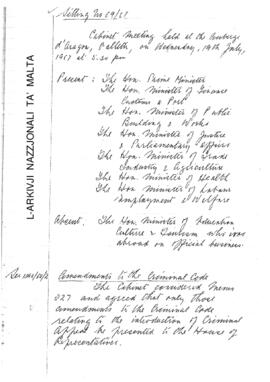 Sitting No 29/67
Cabinet Meeting held at the Auberge
d'Aragon, Valletta, on Wednesday, 19th July,
1967 at 5.30 pm
Present : The Hon. Prime Minister
The Hon. Minister of Finance
Customs & Port
The Hon. Minister of Public
Building & Works
The Hon. Minister of Justice
& Parliamentary Affairs
The Hon. Minister of Trade
Industry & Agriculture
The Hon. Minister of Health
The Hon. Minister of Labour
Employment & Welfare
Absent. The Hon. Minister of Education
Culture & Tourism who was
abroad on official business.
Amendments to the Criminal Code
The Cabinet considered Memo
327 and agreed that only those
amendments to the Criminal Code
relating to the introduction of Criminal
Appeal be presented to the House of
Representatives.
L-ARKIVJI NAZZJONALI TA' MALTA